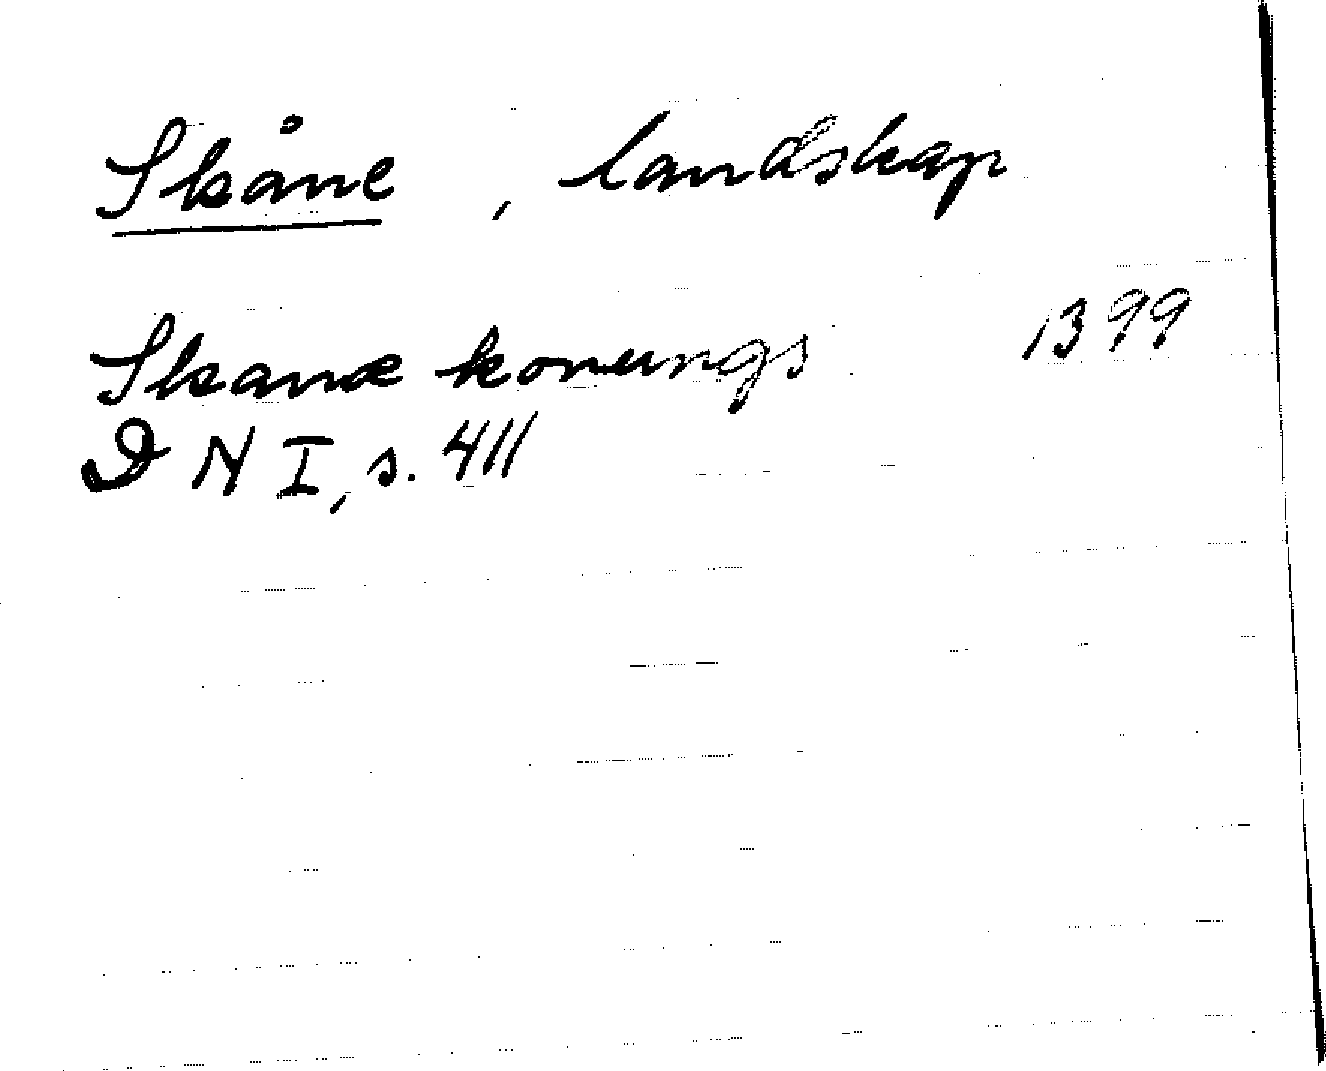 Skåne, landskap
Skanæ konungs 1399
DN I, s. 411